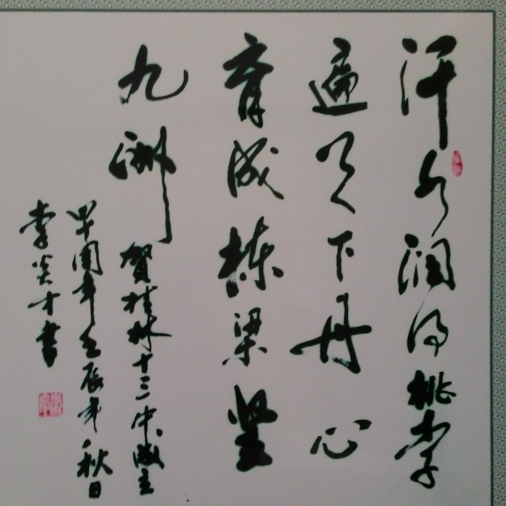 汗水润得桃李
遍天下丹心
育成栋梁竖
九洲
贺桂林十三中成立
周年壬辰年秋日
李炎才书